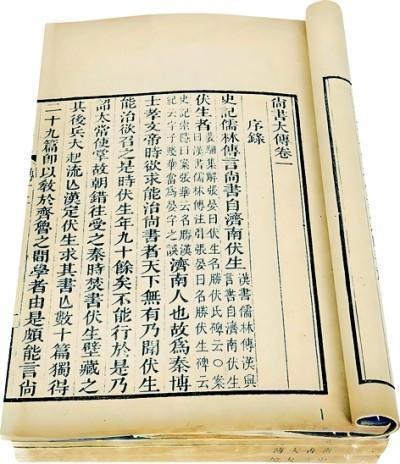 尙書大傳卷一
序錄
史記儒林傳言尙書自濟南伏生
漢書儒林傳漢興
言書自濟南伏生
伏生者
集解張晏曰伏生名勝伏氏碑云○案
漢書儒林傳注引張晏曰名勝伏生碑云
云字子賤華當爲晏字之誤
濟南人也故爲秦博
士孝文帝時欲求能治尙書者天下無有乃聞伏生
能治欲召之是時伏生年九十餘矣不能行於是乃
詔太常使掌故朝錯往受之秦時焚書伏生壁藏之
其後兵大起流亾漢定伏生求其書亾數十篇獨得
二十九篇卽以敎於齊魯之間學者由是頗能言尙